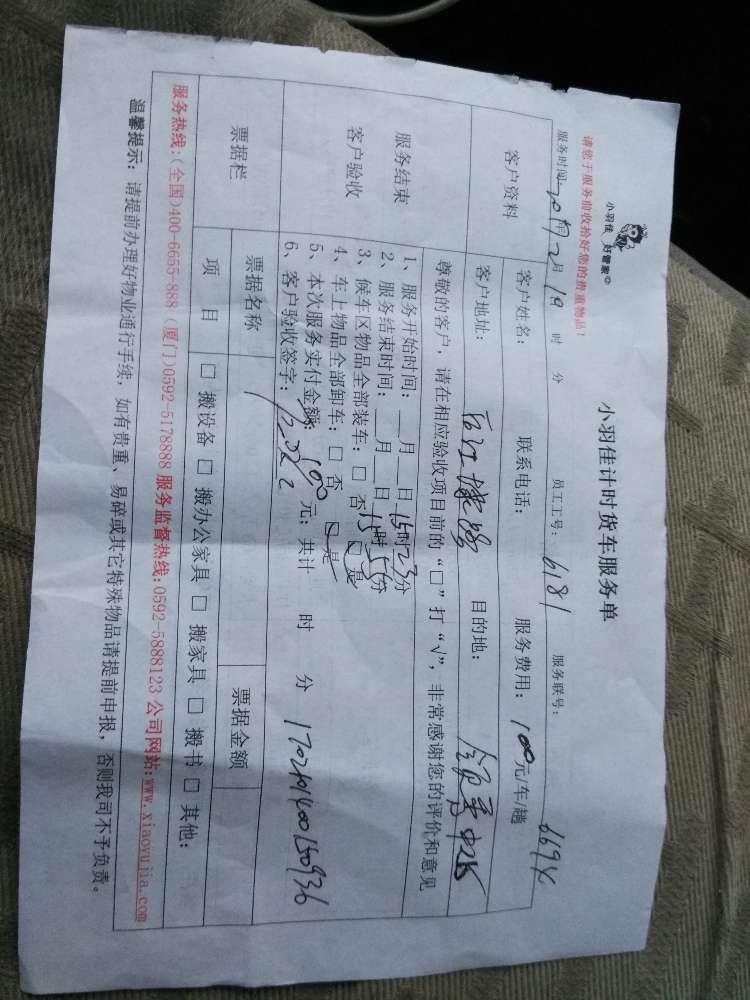 小羽佳 好管家
小羽佳计时货车服务单
请您于服务前收拾好您的贵重物品！
服务时间: 2017年2月19 时 分 员工工号: 6181 服务联号: 6694
客户资料
客户姓名: 联系电话: 服务费用: 100元/车/趟
客户地址: 目的地:
尊敬的客户，请在相应验收项目前的“□”打“√”，非常感谢您的评价和意见
服务结束
客户验收
1、服务开始时间: __月__日15时23分
2、服务结束时间: __月__日15时55分
3、候车区物品全部装车: □ 否 □ 是
4、车上物品全部卸车: □ 否 □ 是
5、本次服务实付金额: 100 元: 共计 时 分
6、客户验收签字:
票据栏
票据名称 票据金额
项 目 □ 搬设备 □ 搬办公家具 □ 搬家具 □ 搬书 □ 其他:
服务热线:(全国)400-6655-888 (厦门)0592-5178888 服务监督热线:0592-5888123 公司网站:www.xiaoyujia.com
温馨提示: 请提前办理好物业通行手续，如有贵重、易碎或其它特殊物品请提前申报，否则我司不予负责。